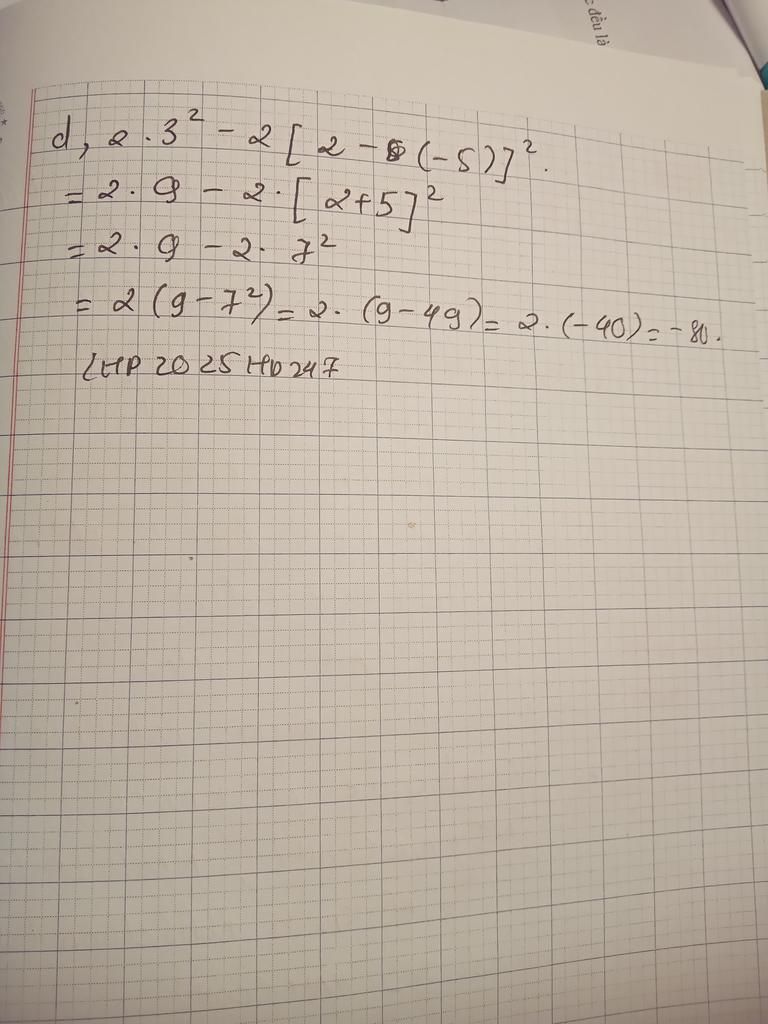 c đều là
d, 2 . 3² - 2 [ 2 - (-5)]².
= 2 . 9 - 2 . [ 2+5 ]²
= 2 . 9 - 2 . 7²
= 2 (9 - 7²) = 2 . (9 - 49) = 2 . (-40) = -80.
LHP 2025 HD 247